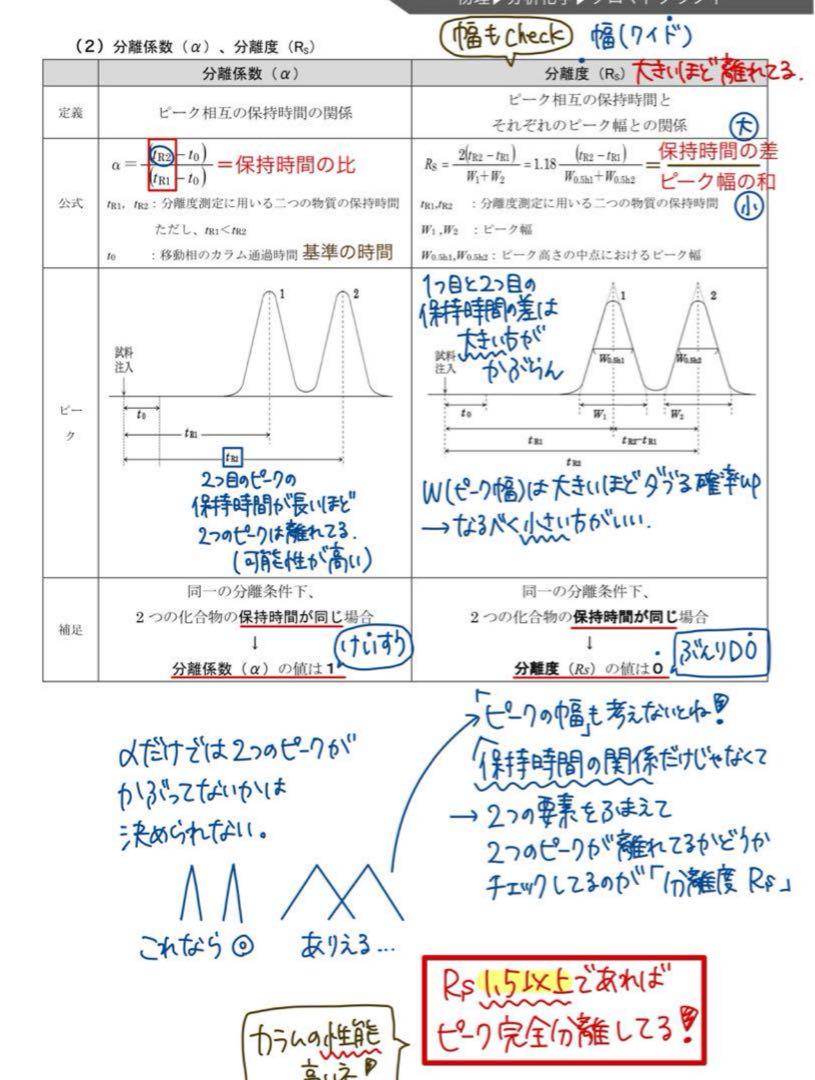 物理▶分析化学▶クロマトグラフィー
（2）分離係数（α）、分離度（RS）
幅もcheck 幅(ワイド)
分離係数（α）
分離度（RS） 大きいほど離れてる.
定義
ピーク相互の保持時間の関係
ピーク相互の保持時間と
それぞれのピーク幅との関係
大
公式
α＝(tR2－t0)/(tR1－t0) ＝保持時間の比
tR1，tR2：分離度測定に用いる二つの物質の保持時間
ただし、tR1<tR2
t0 ：移動相のカラム通過時間 基準の時間
RS＝2(tR2－tR1)/(W1+W2)＝1.18 (tR2－tR1)/(W0.5h1+W0.5h2)＝保持時間の差/ピーク幅の和
小
tR1,tR2 ：分離度測定に用いる二つの物質の保持時間
W1,W2 ：ピーク幅
W0.5h1,W0.5h2：ピーク高さの中点におけるピーク幅
ピー
ク
1 2
試料
注入
t0
tR1
tR2
2つ目のピークの
保持時間が長いほど
2つのピークは離れてる.
(可能性が高い)
1つ目と2つ目の
保持時間の差は
大きい方が
かぶらん
1 2
試料
注入
W0.5h1 W0.5h2
t0 W1 W2
tR1 tR2−tR1
tR2
W(ピーク幅)は大きいほどダブる確率up
→なるべく小さい方がいい.
補足
同一の分離条件下、
2つの化合物の保持時間が同じ場合
↓
分離係数（α）の値は1
けいすう
同一の分離条件下、
2つの化合物の保持時間が同じ場合
↓
分離度（Rs）の値は0
ぶんりDO
αだけでは2つのピークが
かぶってないかは
決められない。
これなら◎ ありえる…
「ピークの幅」も考えないとね!
「保持時間の関係だけじゃなくて
→2つの要素をふまえて
2つのピークが離れてるかどうか
チェックしてるのが「分離度 Rs」
Rs 1.5以上であれば
ピーク完全分離してる!
カラムの性能
高いネ!